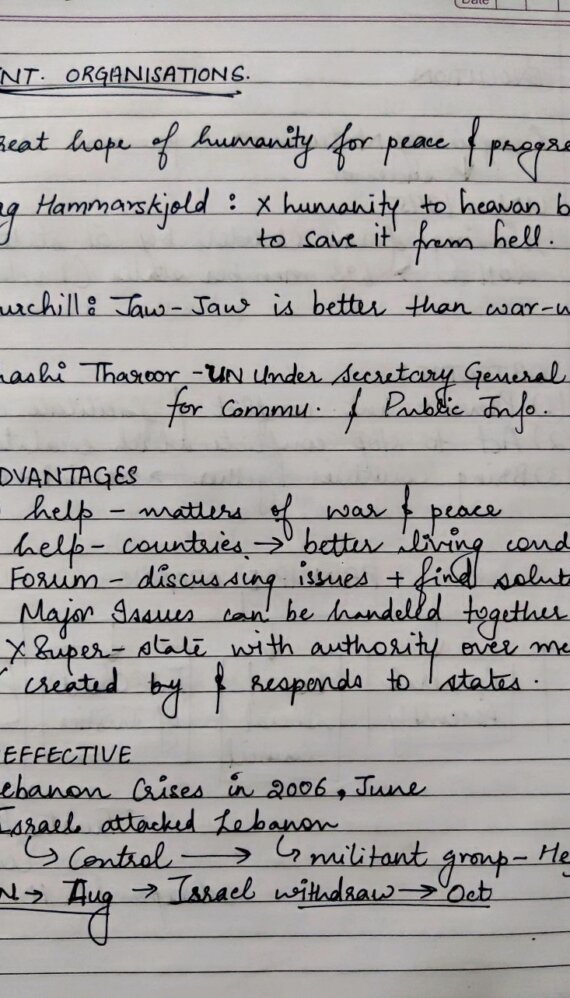 Date
NT. ORGANISATIONS.
reat hope of humanity for peace & progre
g Hammarskjold : X humanity to heavan b
to save it from hell.
urchill : Jaw-Jaw is better than war-w
hashi Tharoor - UN Under Secretary General
for Commu. & Public Info.
DVANTAGES
help - matters of war & peace
help - countries → better living cond
Forum - discussing issues + find solut
Major Issues can be handeld together
X Super-state with authority over me
created by & responds to states.
EFFECTIVE
ebanon Crises in 2006, June
Israel attacked Lebanon
↳ Control → ↳ militant group - He
N → Aug → Israel withdraw → Oct